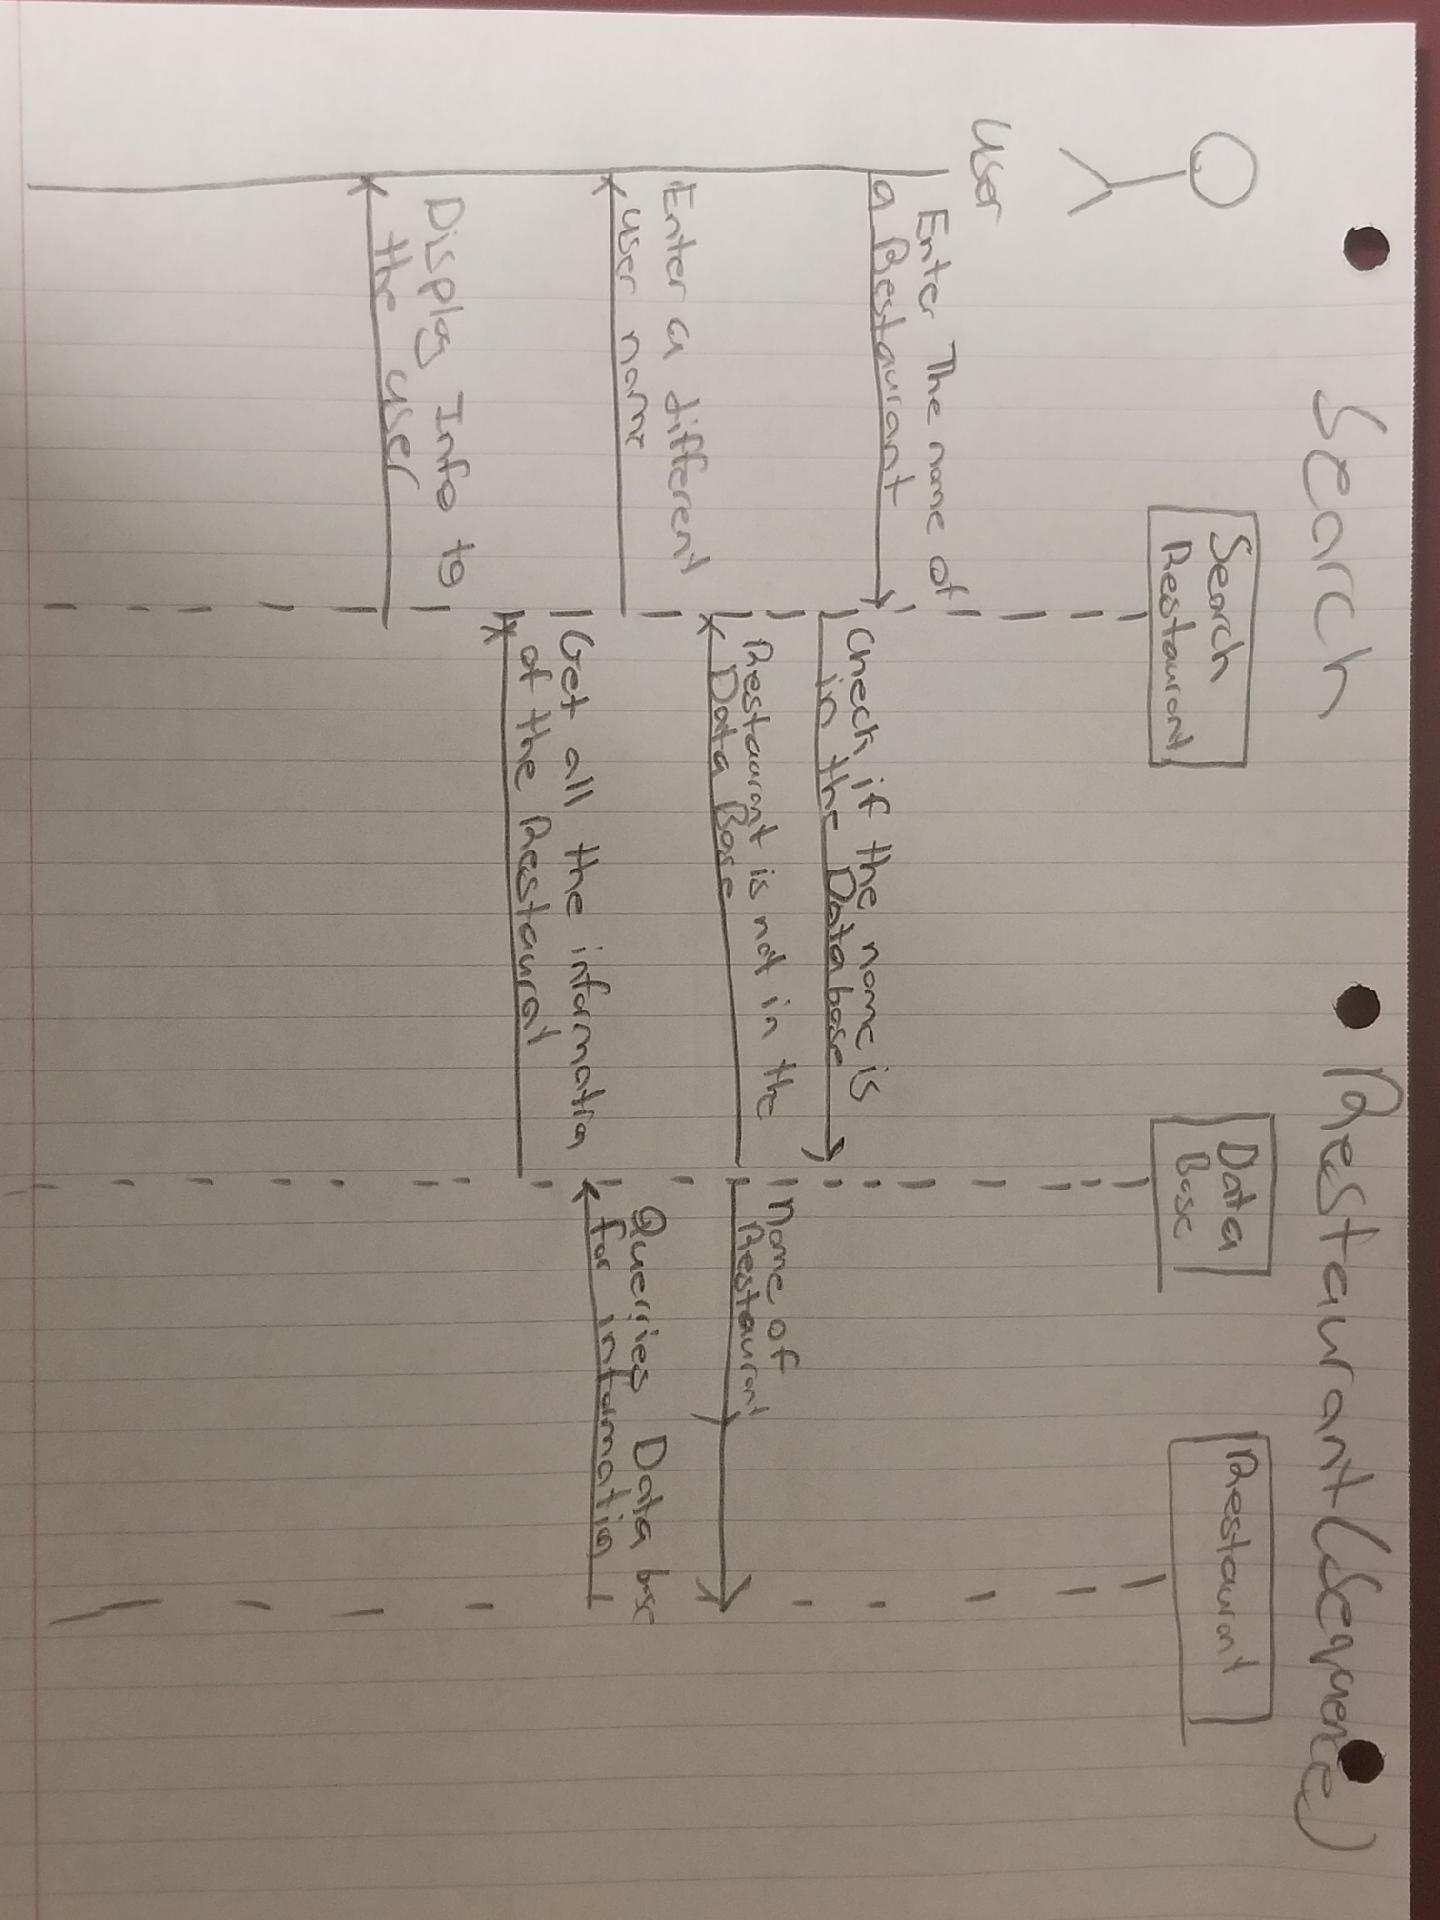 Search Restaurant (Sequence)
User
Search
Restaurant
Data
Base
Restaurant
Enter The name of
a Restaurant
Check if the name is
in the Database
Restaurant is not in the
Data Base
Name of
Restaurant
Enter a different
user name
Querries Data base
for information
Get all the information
of the Restaurat
Display Info to
the user